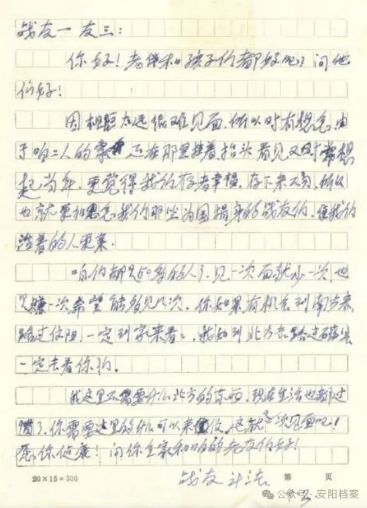 战友一友三:
你好!老伴和孩子们都好吧?问他
们好!
因相距太远很难见面,所以时有想念,由
于咱二人的 还在那里挂着,抬头看见又时常想
起当年,更觉得我们存者幸福,存下来不易,所以
也就更想念我们那些为国捐身的战友们,使我们
活着的人更亲。
咱们都是60多的人了,见一次面就少一次,也
又赚一次希望能再见几次。你如果有机会到南方来
路过信阳,一定到家来看看,我如到北方去路过
一定去看你们。
我这里不需要什么北方的东西,现在生活也都过
惯了,你需要这里的什么可以来信,
愿你健康!问你全家和咱的老友们好!
战友 许
20×15=300
第 页
公众号·安阳档案